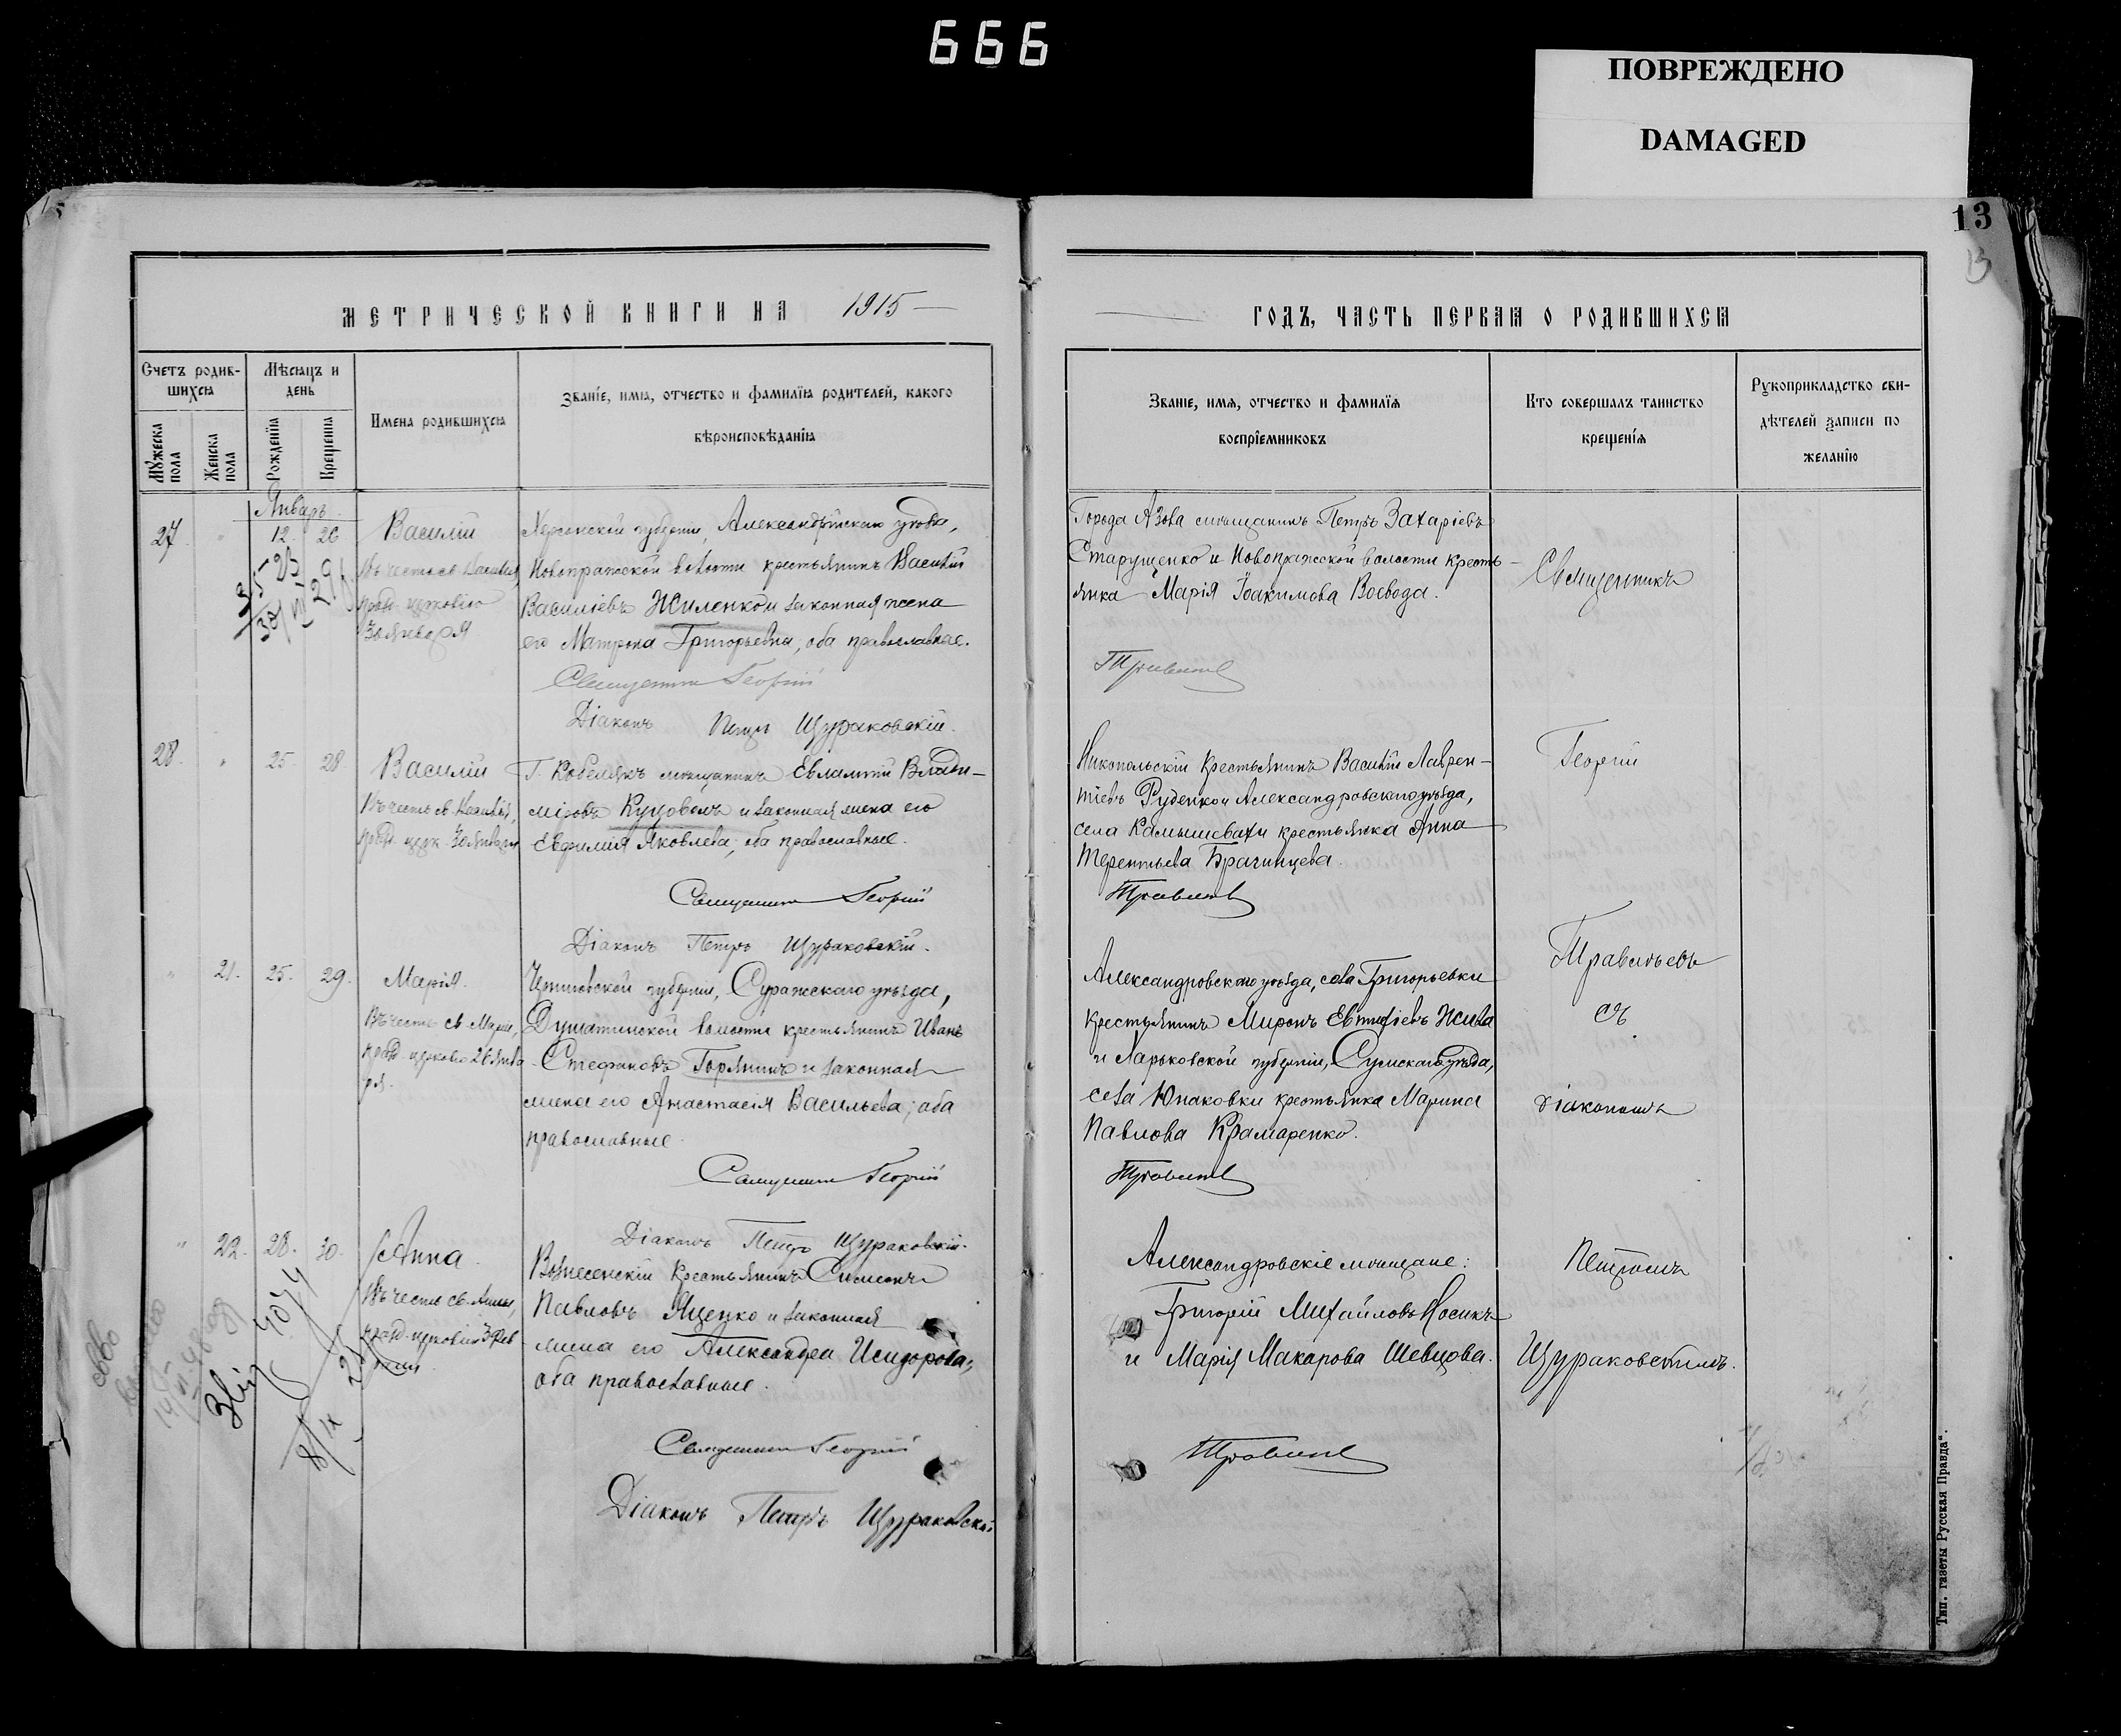 666
ПОВРЕЖДЕНО
DAMAGED
13
13
МЕТРИЧЕСКОЙ КНИГИ НА 1915
ГОДЪ, ЧАСТЬ ПЕРВАЯ О РОДИВШИХСЯ
Счетъ родив-
шихся
Мужеска пола
Женска пола
Мѣсяцъ и
день
Рожденїя
Крещенїя
Имена родившихся
Званїе, имя, отчество и фамилїя родителей, какого
вѣроисповѣданїя
Званїе, имя, отчество и фамилїя
воспрїемниковъ
Кто совершалъ таинство
крещенїя
Рукоприкладство сви-
дѣтелей записи по
желанїю
Январь
27 " 12. 26
Василій
Въ честь св. Василія,
празд. церковію
30 января
Херсонской губерніи, Александрійскаго уѣзда,
Новопражской волости крестьянинъ Василій
Василіевъ Жиленко и законная жена
его Матрона Григорьевна, оба православные.
Священникъ Георгій
Діаконъ Петръ Щураковскій.
Города Азова мѣщанинъ Петръ Захаріевъ
Старущенко и Новопражской волости кресть-
янка Марія Іоакимова Воевода.
Травильевъ
28. " 25. 28.
Василій
Въ честь св. Василія,
празд. церк. 30 января
Г. Кобелякъ мѣщанинъ Евлампій Влади-
міровъ Куцоволъ и законная жена его
Евфимія Яковлева, оба православные.
Священникъ Георгій
Діаконъ Петръ Щураковскій.
Никопольскій крестьянинъ Василій Лаврен-
тіевъ Руденко и Александровскаго уѣзда,
села Камышевахи крестьянка Анна
Терентьева Брагинцева.
" 21. 25. 29.
Марія.
Въ честь св. Маріи,
празд. церковію 26 янва
ря.
Черниговской губерніи, Суражскаго уѣзда,
Душатинской волости крестьянинъ Иванъ
Стефановъ Горянинъ и законная
жена его Анастасія Васильева; оба
православные.
Священникъ Георгій
Діаконъ Петръ Щураковскій.
Александровскаго уѣзда, села Григорьевки
крестьянинъ Миронъ Евтифіевъ Жива
и Харьковской губерніи, Сумскаго уѣзда,
села Юнаковки крестьянка Марина
Павлова Крамаренко.
" 22. 28. 30.
Анна.
Въ честь св. Анны,
празд. церковію 3 фев
раля.
Вознесенскій крестьянинъ Симеонъ
Павловъ Яценко и законная
жена его Александра Исидорова;
оба православные.
Священникъ Георгій
Діаконъ Петръ Щураковскій
Александровскіе мѣщане:
Григорій Михайловъ Носикъ
и Марія Макарова Шевцова.
Священникъ
Георгій
Травильевъ
съ
діакономъ
Петромъ
Щураковскимъ.
Тип. газеты Русская Правда".